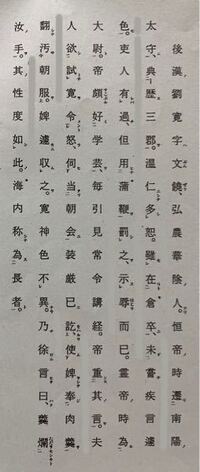 後漢劉寛字文饒弘農華陰人。恒帝時遷南陽
太守典歴三郡。温仁多恕。雖在倉卒未嘗疾言遽
色。吏人有過但用蒲鞭罰之示辱而已。霊帝時為
大尉。帝頗好学芸。毎引見常令講経。帝重其言。夫
人欲試寛令怒。伺当朝会装厳已訖、使婢奉肉羹
翻汚朝服。婢遽収之。寛神色不異。乃徐言曰、羹爛
汝手。其性度如此。海内称為長者。